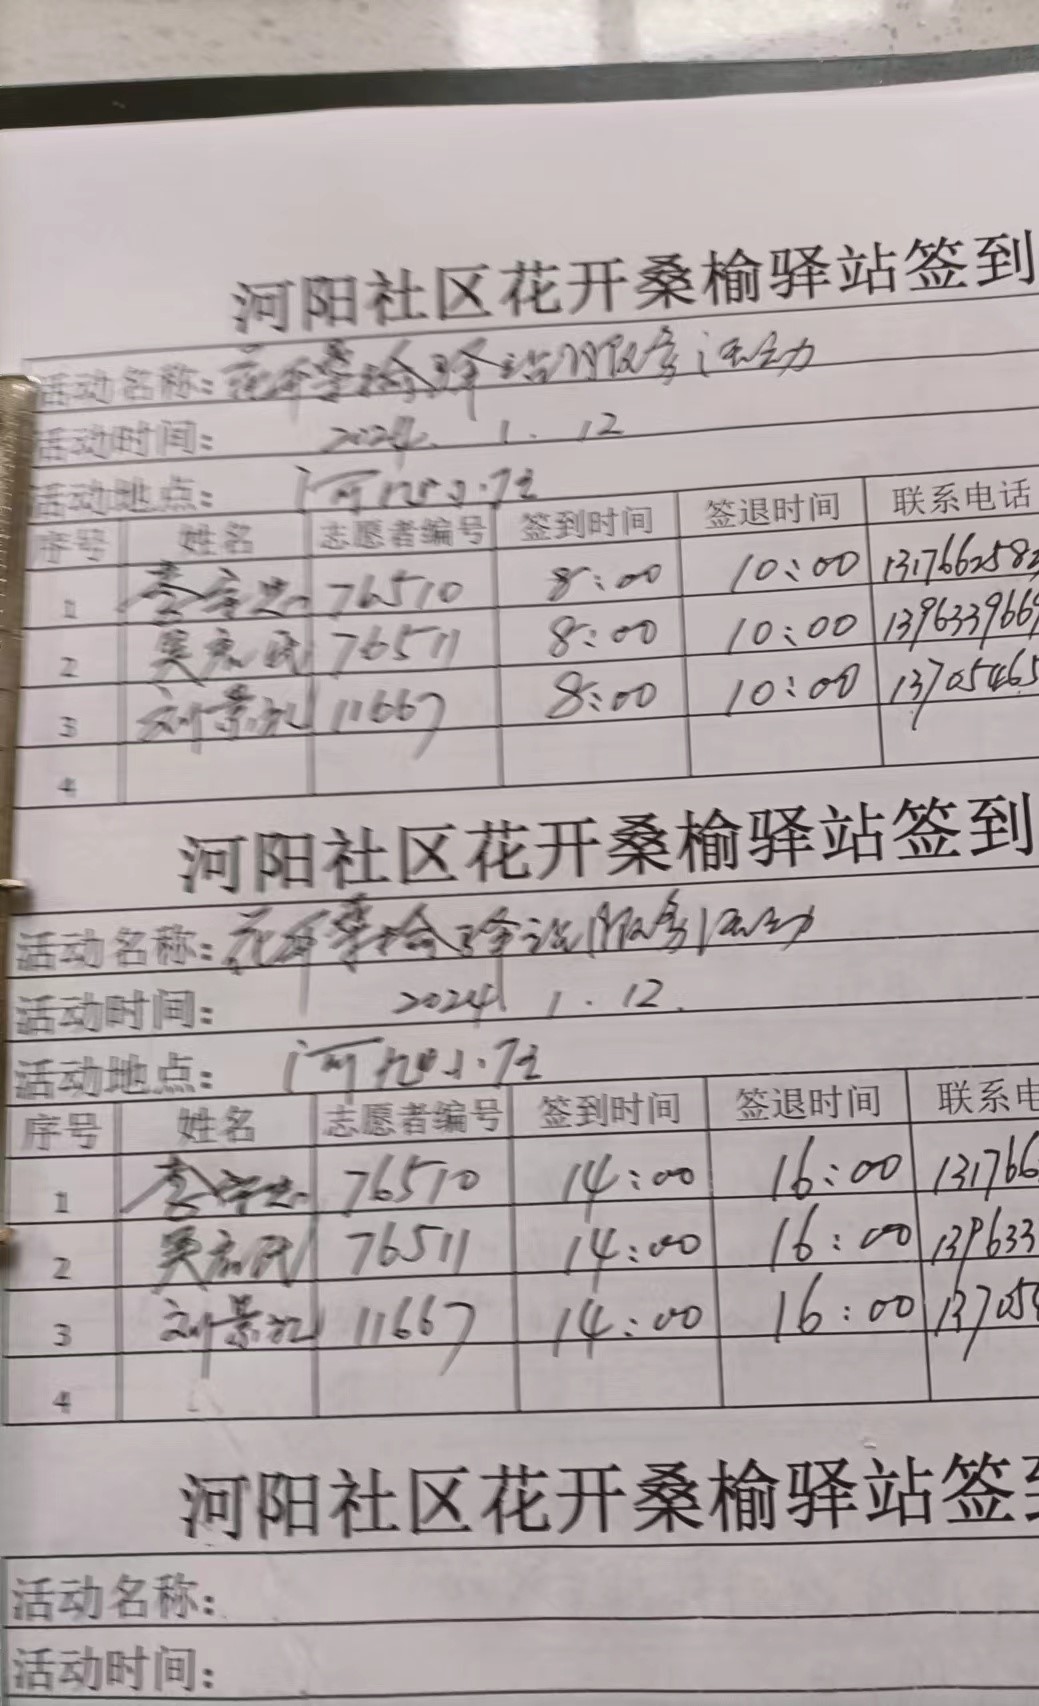 河阳社区花开桑榆驿站签到
活动名称：花开桑榆驿站服务活动
活动时间：2024.1.12
活动地点：河阳小区
序号 姓名 志愿者编号 签到时间 签退时间 联系电话
1 76510 8:00 10:00 1317662582
2 76511 8:00 10:00 1396339669
3 刘景 11667 8:00 10:00 13705465
4
河阳社区花开桑榆驿站签到
活动名称：花开桑榆驿站服务活动
活动时间：2024.1.12.
活动地点：河阳小区
序号 姓名 志愿者编号 签到时间 签退时间 联系电
1 76510 14:00 16:00 131766
2 76511 14:00 16:00 139633
3 刘景 11667 14:00 16:00 13705
4
河阳社区花开桑榆驿站签到
活动名称：
活动时间：